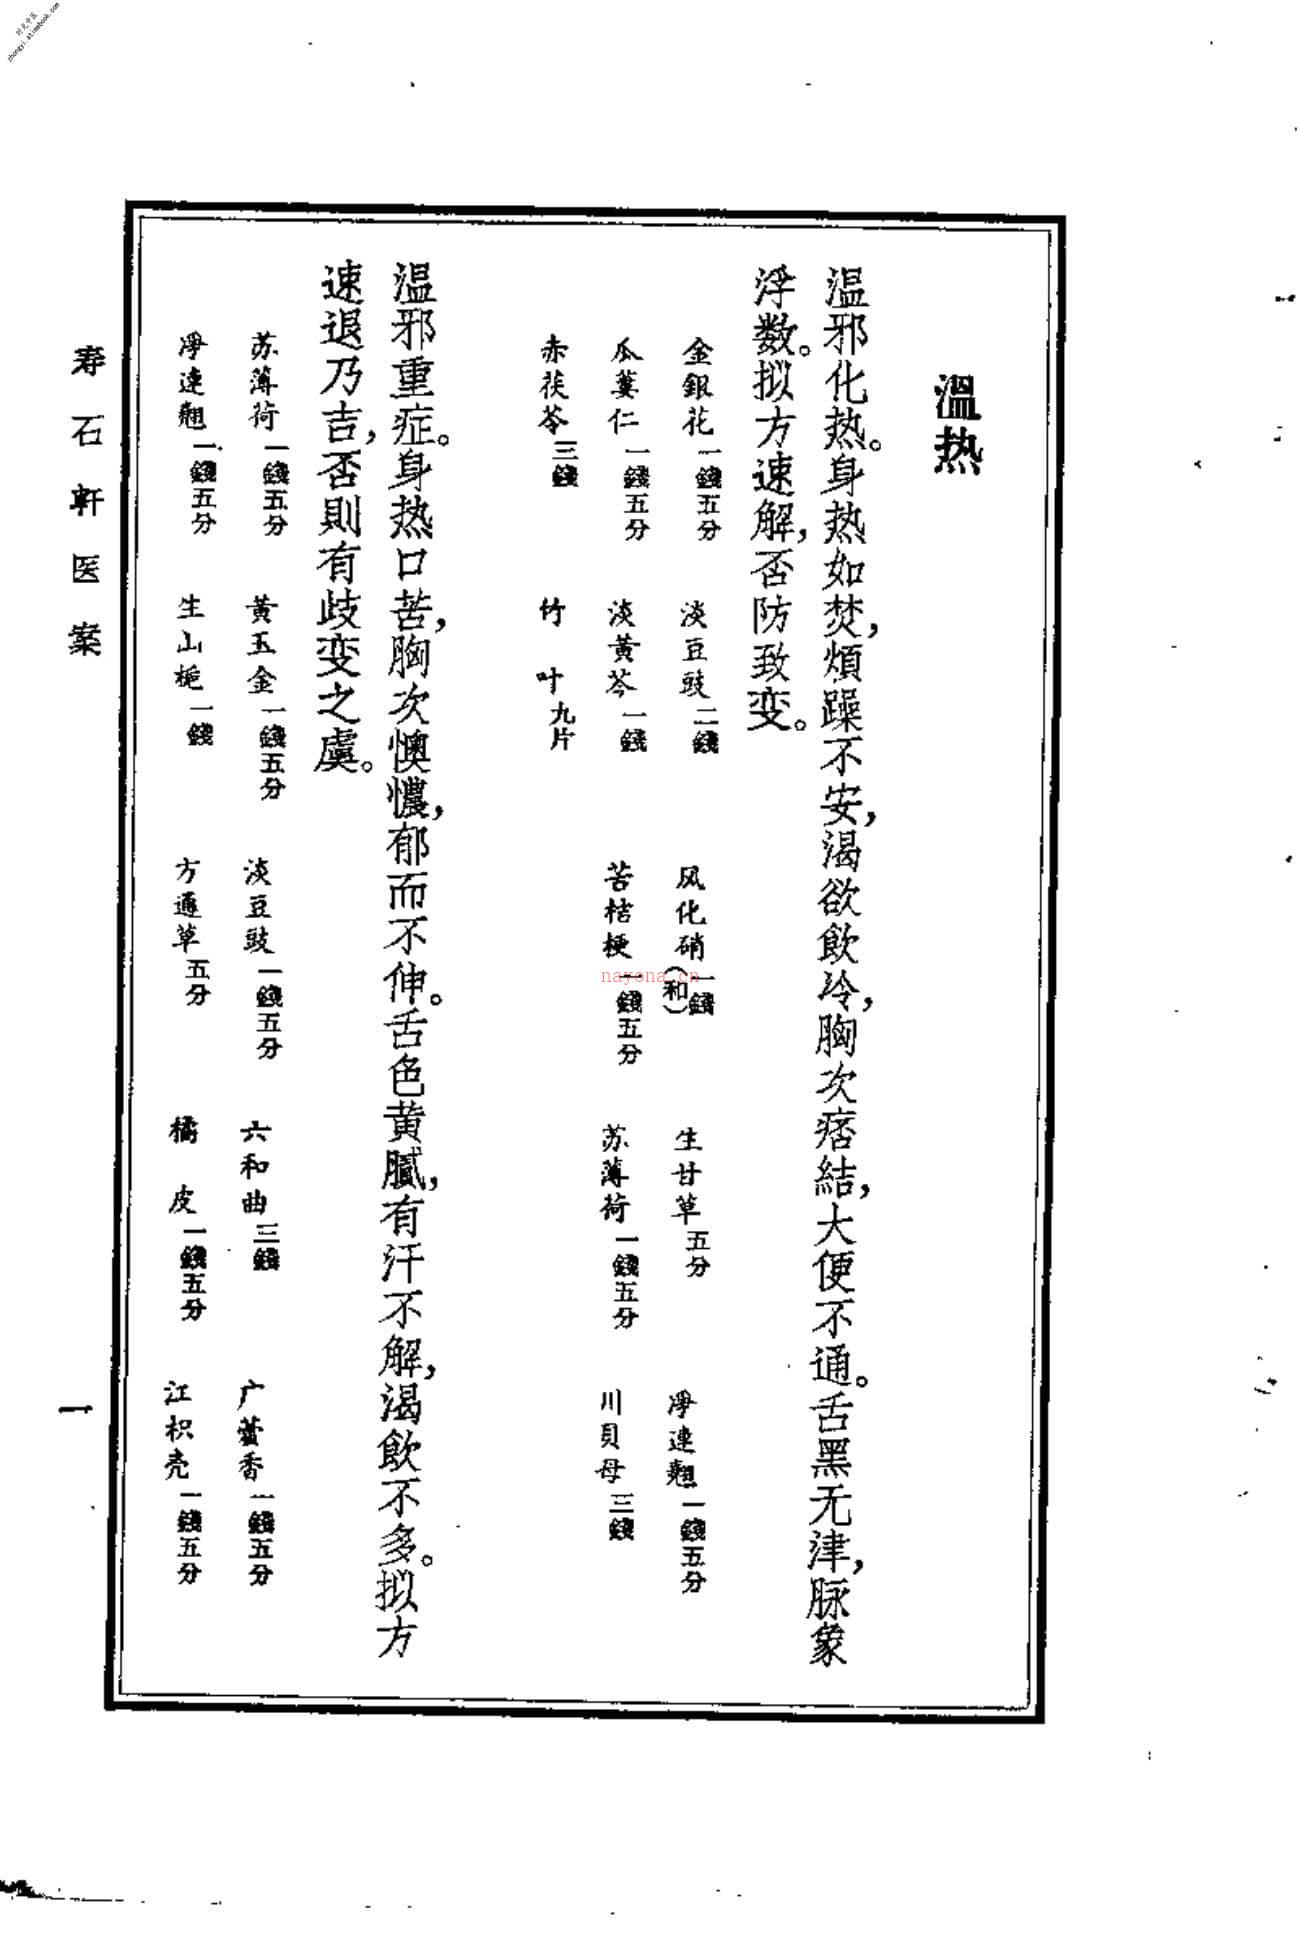 时光中医
zhongyi.atimebook.com
溫热
温邪化热。身热如焚，煩躁不安，渴欲飲冷，胸次痞結，大便不通。舌黑无津，脉象
浮数。拟方速解，否防致变。
金銀花一錢五分 淡豆豉二錢 风化硝一錢（和） 生甘草五分 淨連翹一錢五分
瓜蔞仁一錢五分 淡黃芩一錢 苦桔梗一錢五分 苏薄荷一錢五分 川貝母三錢
赤茯苓三錢 竹叶九片
温邪重症。身热口苦，胸次懊憹，郁而不伸。舌色黄膩，有汗不解，渴飲不多。拟方
速退乃吉，否則有歧变之虞。
苏薄荷一錢五分 黃玉金一錢五分 淡豆豉一錢五分 六和曲三錢 广藿香一錢五分
淨連翹一錢五分 生山梔一錢 方通草五分 橘皮一錢五分 江枳壳一錢五分
寿石軒医案
一
nayona.cn